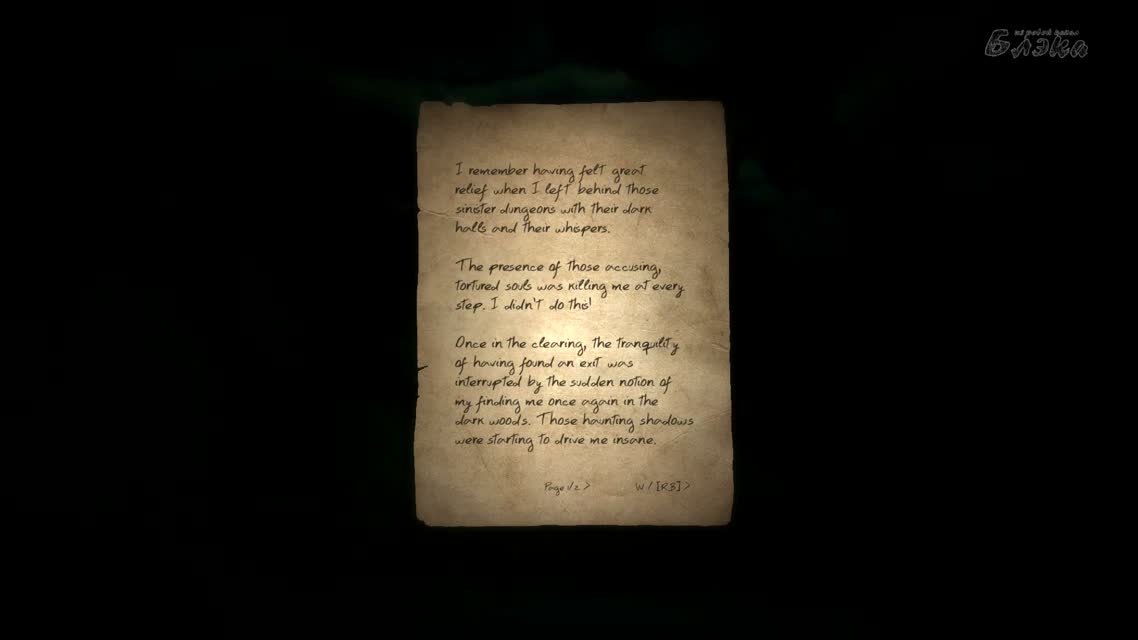 игровой канал
Блэка
I remember having felt great
relief when I left behind those
sinister dungeons with their dark
halls and their whispers.
The presence of those accusing,
tortured souls was killing me at every
step. I didn't do this!
Once in the clearing, the tranquility
of having found an exit was
interrupted by the sudden notion of
my finding me once again in the
dark woods. Those haunting shadows
were starting to drive me insane.
Page 1/2 > W / [RB] >